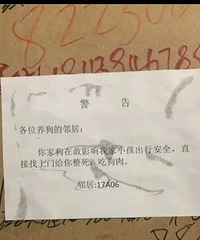 警 告
各位养狗的邻居:
你家狗在敢影响我家小孩出行安全，直
接找上门给你整死，吃狗肉。
邻居:17A06